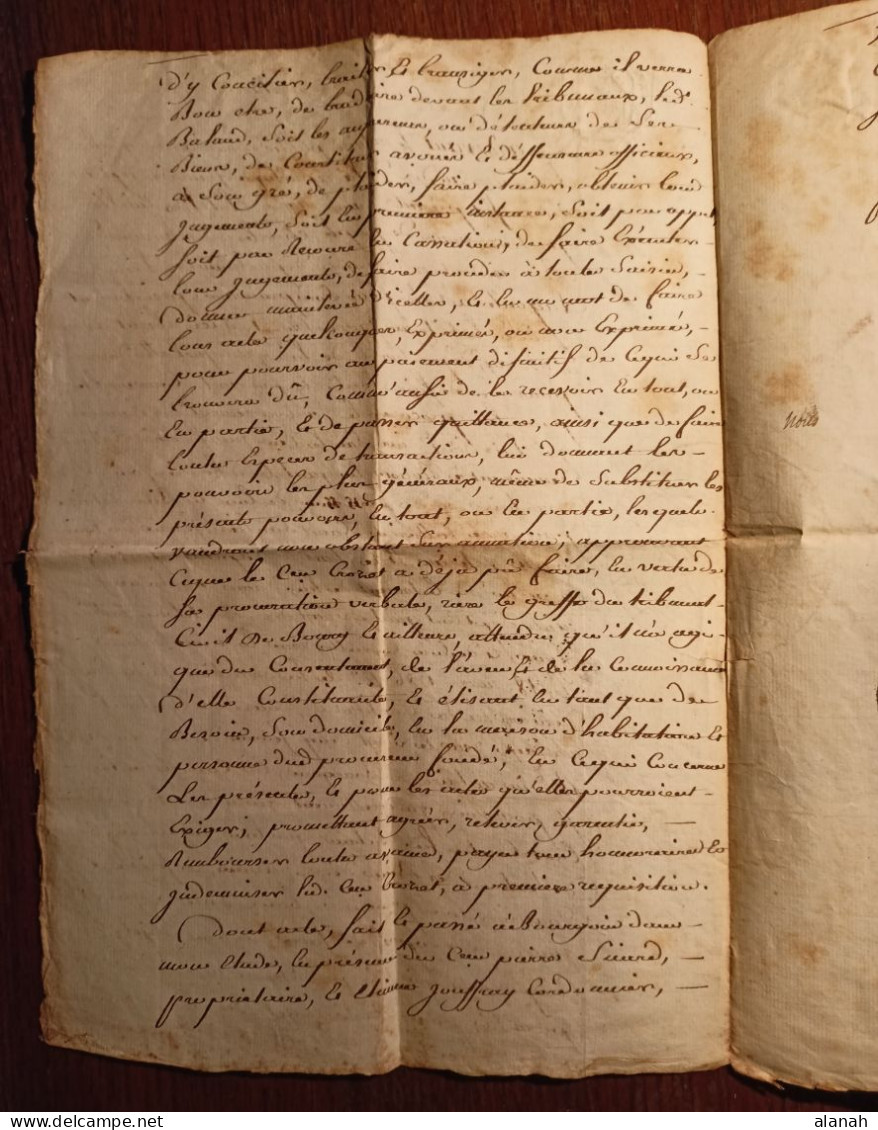 d'y Concilier, traiter Et transiger, Comme il verra
Bon etre, de traduire devant les tribunaux, led.
Balaud, soit les acquereurs, ou détenteurs de ses
Biens, de Constituer avoués Et déffenseurs officieux,
a Son gré, de plaider, faire plaider, obtenir tous
jugements, soit En premiere instance, soit par appel,
soit par Recours En Cassation, de faire Exécuter
tous jugements, de faire proceder à toute Saisie,
donner mainlevée d'icelles, Et En un mot de faire
tous actes quelconques, Exprimés, ou non Exprimés,
pour parvenir au paiement définitif de Cequi Se
trouvera dû, Comm'aussi de le recevoir En tout, ou
En partie, Et de passer quittances, ainsi que de faire
toutes Espèces de transactions, lui donnant les
pouvoirs les plus généraux, même de Substituer les
présents pouvoirs, En tout, ou En partie, les quels
vaudront non obstant Surannation, approuvant
Ceque le Cen a déjà pû faire, En vertu de
Sa procuration verbale, rière le greffe du tribunal
Civil de Bourg Et ailleurs, attendu qu'il n'a agi
que du Consentement, de l'aveu Et de la Connoissance
d'elle Constituante, Et élisant En tant que de
Besoin, Son domicile, En la maison d'habitation Et
personne dud procureur fondé, En Cequi Concerne
Les présentes, Et pour les actes qu'elles pourroient
Exiger; promettant agréer, relever, garantir,
Rembourser toutes avances, payer tous honoraires Et
indemniser led. Cen , à premiere requisition.
Dont acte, fait Et passé à Bourgoin dans
mon Etude, En présence du Cen pierre ,
propriétaire, Et Etienne jouffray Cordonnier,
Noirs
alanah